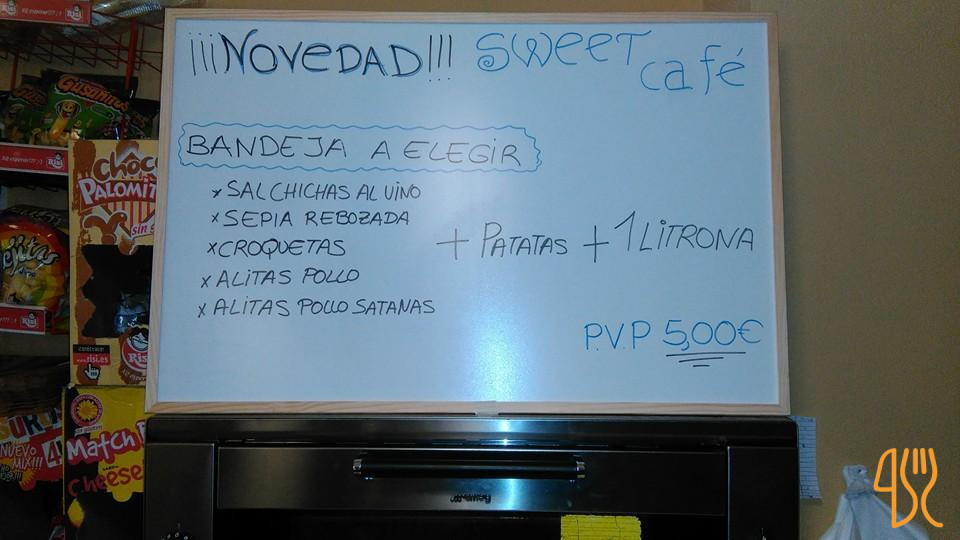 ¡¡¡NOVEDAD!!! SWEET café
BANDEJA A ELEGIR
x SALCHICHAS AL VINO
x SEPIA REBOZADA
x CROQUETAS
x ALITAS POLLO
x ALITAS POLLO SATANAS
+ PATATAS + 1 LITRONA
P.V.P 5,00€
Risi
GUSANITOS
Risi
choco
PALOMIT
sin g
Risi
www.risi.es
Risi
NUEVO
MIX!!!
Match
Cheese